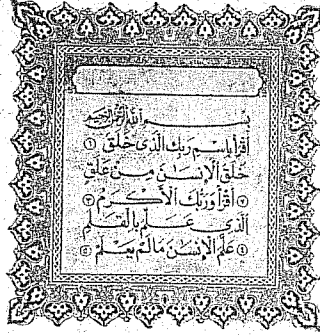 بسم الله الرحمن الرحيم
اقرأ باسم ربك الذي خلق ١
خلق الإنسان من علق
٢ اقرأ وربك الأكرم ٣
الذي علم بالقلم
٤ علم الإنسان ما لم يعلم ٥